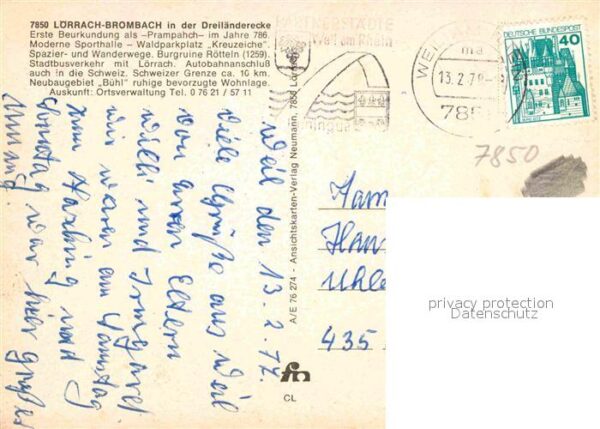 7850 LÖRRACH-BROMBACH in der Dreiländerecke
Erste Beurkundung als –Prampahch– im Jahre 786.
Moderne Sporthalle – Waldparkplatz „Kreuzeiche".
Spazier- und Wanderwege. Burgruine Rötteln (1259).
Stadtbusverkehr mit Lörrach. Autobahnanschluß
auch in die Schweiz. Schweizer Grenze ca. 10 km.
Neubaugebiet „Bühl" ruhige bevorzugte Wohnlage.
Auskunft: Ortsverwaltung Tel. 0 76 21 / 5711
Weil den 13.2.72.
Viele Grüße aus Weil
von euren Eltern
Willi und Irmgard
wir waren am Samstag
zum und
Samstag war hier großer
Umzug.
A/E 76 274 - Ansichtskarten-Verlag Neumann, 7850 Lörrach
CL
Weil am Rhein
13.2.79
785
DEUTSCHE BUNDESPOST
40
7850
Ham
Han
Uhle
435
privacy protection
Datenschutz